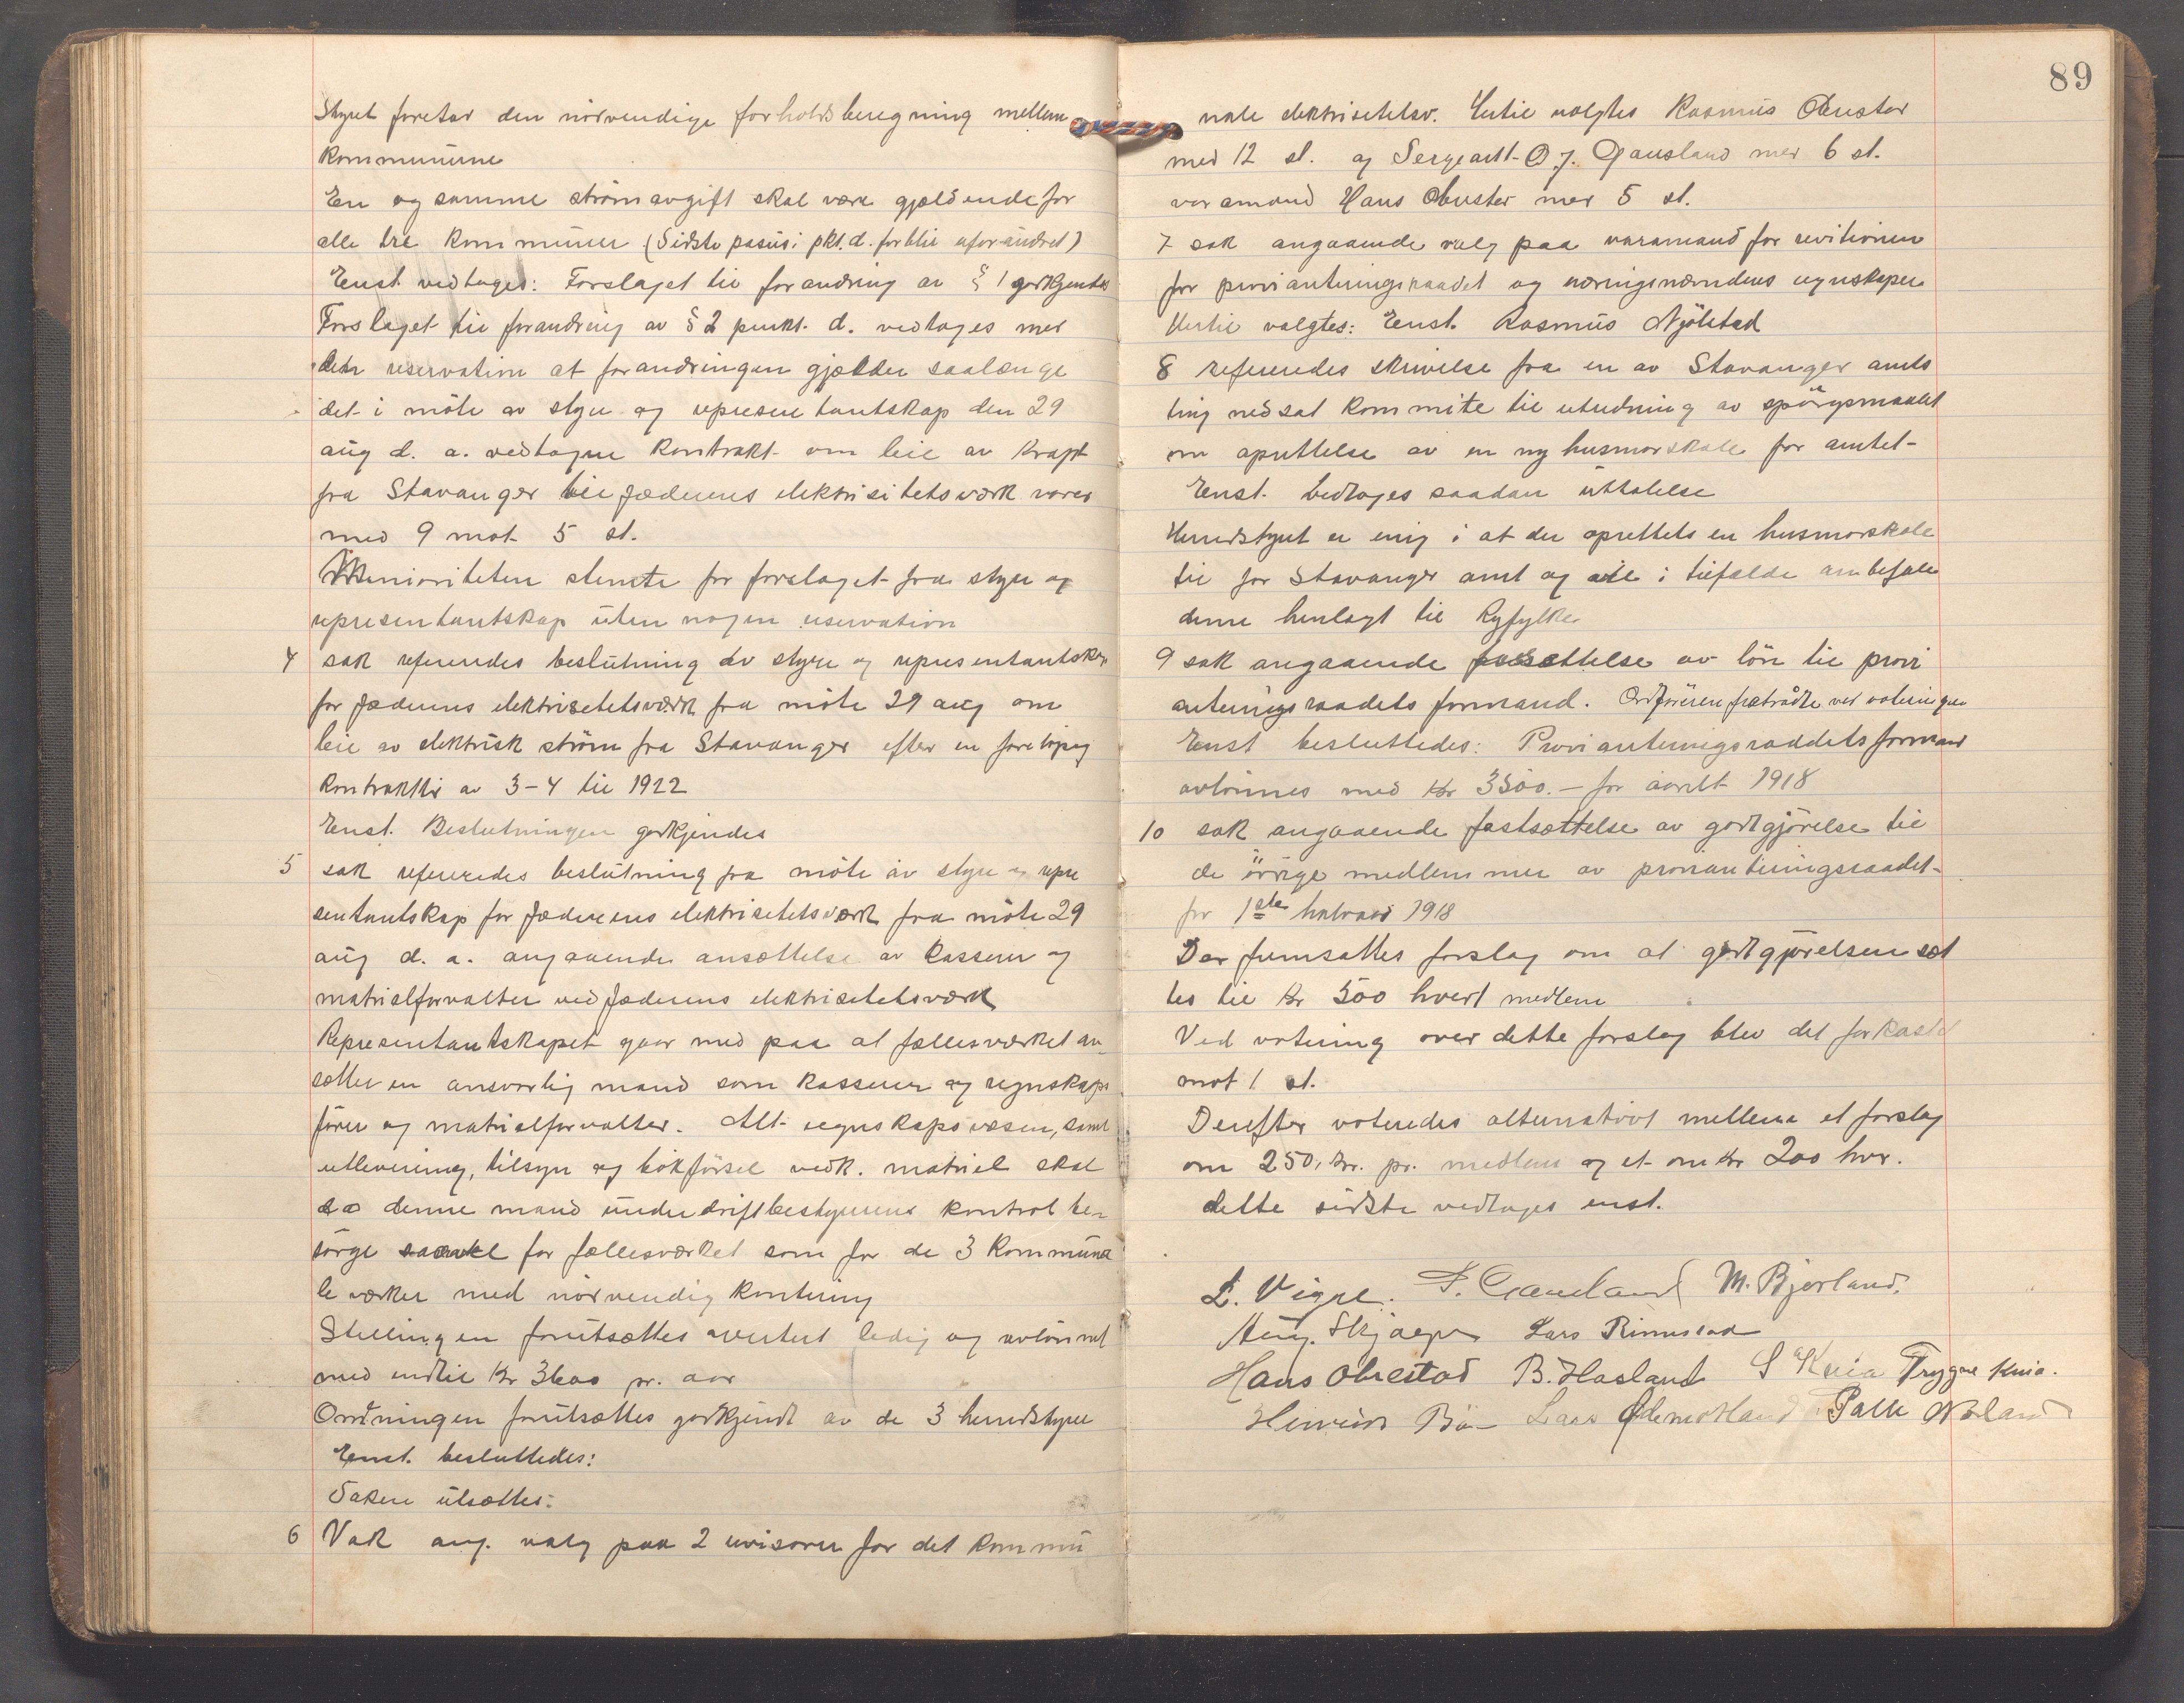 Styret foretar den nörvendige forholdsberegning mellem
Kommunerne
En og samme strömavgift skal være gjældende for
alle tre Kommuner (Sidste pasus i pkt. d. forblir uforandret)
Enst. vedtages: Forslaget til forandring av § 1 godkjendes
Forslaget til forandring av § 2 punkt. d. vedtages med
den reservation at forandringen gjælder saalænge
det i möte av styre og representantskap den 29
aug d. a. vedtagne Kontrakt om leie av Kraft
fra Stavanger til Jæderens elektrisitetsværk varer
med 9 mot 5 st.
Minioriteten stemte for forslaget fra styre og
representantskap uten nogen reservation
4 sak refereredes beslutning av styre og representantskap
for Jæderens elektrisetetsværk fra möte 29 aug om
leie av elektrisk ström fra Stavanger efter en forelöpig
Kontrakttid av 3-4 til 1922
Enst. Beslutningen godkjendes
5 sak refereredes beslutning fra möte av styre og repre
sentantskap for Jæderens elektrisetetsværk fra möte 29
aug d. a. angaaende ansættelse av Kasserer og
matrialforvalter ved Jæderens elektrisetetsværk
Representantskapet gaar med paa at fællesværket an-
sætter en ansvarlig mand som Kasserer og regnskaps
förer og matrialforvalter. Alt regnskapsvæsen, samt
utlevering, tilsyn og bokförsel vedk. matriel skal
da denne mand under driftbestyrerens kontrol be-
sörge saavel for fællesværket som for de 3 Kommuna
le værker med nörvendig Kontering
Stillingen forutsættes avertert ledig og avlönnet
med indtil Kr 3600 pr. aar
Ordningen forutsættes godkjendt av de 3 herredstyrer
Enst. besluttedes:
Saken utsættes.
6 Vak ang. valg paa 2 revisorer for det Kommu
89
nale elektrisetetsv. Hertil valgtes Rasmus Obrestad
med 12 st. og Sergeant O. J. Gausland med 6 st.
varamand Hans Obrestad med 5 st.
7 sak angaaende valg paa varamand for revitionen
for provianteringsraadet og næringsnævndens regnskaper
Hertil valgtes: Enst. Rasmus Njölstad
8 refereredes skrivelse fra en av Stavanger amts
ting nedsat Kommite til utredning av spörgsmaalet
om oprettelse av en ny husmorskole for amtet
Enst. vedtoges saadan uttalelse
Herredstyret er enig i at der oprettets en husmorskole
til for Stavanger amt og vil i tilfælde anbefale
denne henlagt til Ryfylke
9 sak angaaende fastsættelse av lön til provi
anteringsraadets formand. Ordföreren fratrådte ved voteringen
Enst besluttedes: Provianteringsraadets formand
avlönnes med Kr 3500.- for aaret 1918
10 sak angaaende fastsættelse av godtgjörelse til
de övrige medlemmer av provianteringsraadet
for 1ste halvaar 1918
Der fremsattes forslag om at godtgjörelsen sæt
tes til Kr 500 hvert medlem
Ved votering over dette forslag blev det forkastet
mot 1 st.
Derefter voteredes alternativt mellem et forslag
om 250, kr. pr. medlem og et om Kr 200 hver.
dette sidste vedtages enst.
L. Vigre. M. Bjorland.
Aug. Skjæpe Lars Rimestad
Hans Obrestad B. Hasland S Kvia Trygve Kvia.
Henrik Bö Lars Ødemotland Palle Norland